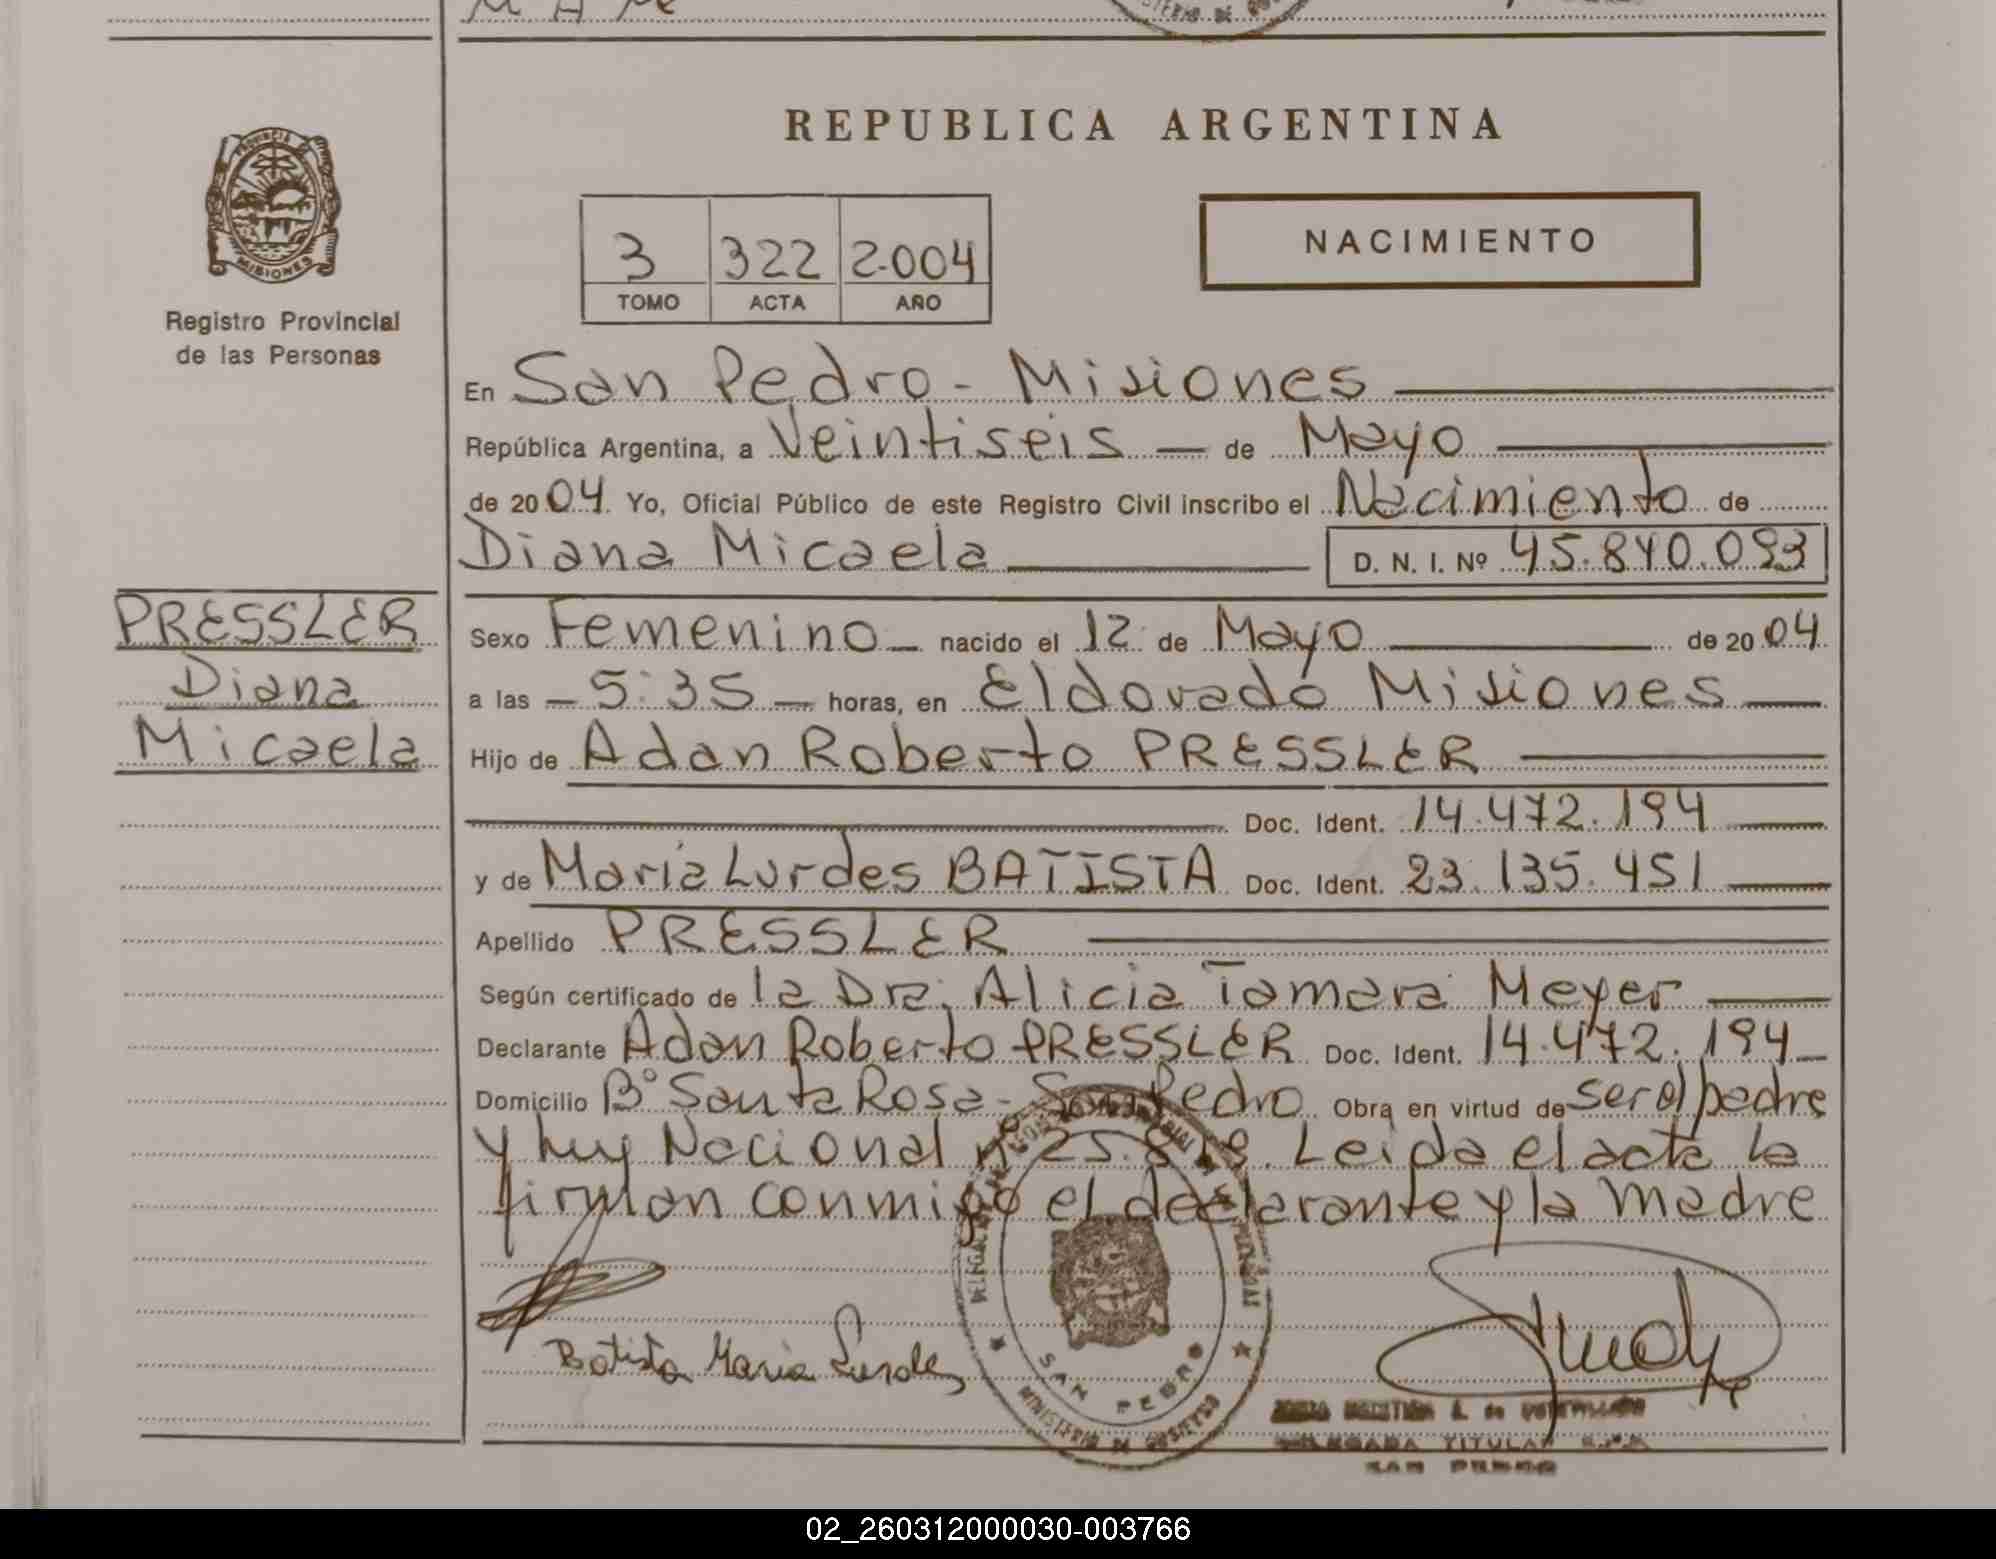 REPUBLICA ARGENTINA
PROVINCIA DE
MISIONES
Registro Provincial
de las Personas
3 322 2.004
TOMO ACTA AÑO
NACIMIENTO
En San Pedro - Misiones
República Argentina, a Veintiseis — de Mayo
de 2004 Yo, Oficial Público de este Registro Civil inscribo el Nacimiento de
Diana Micaela D. N. I. Nº 45.840.093
PRESSLER
Diana
Micaela
Sexo Femenino nacido el 12 de Mayo de 2004
a las — 5:35 — horas, en Eldorado Misiones
Hijo de Adan Roberto PRESSLER
Doc. Ident. 14.472.194
y de Maria Lurdes BATISTA Doc. Ident. 23.135.451
Apellido PRESSLER
Según certificado de la Dra. Alicia Tamara Meyer
Declarante Adan Roberto PRESSLER Doc. Ident. 14.472.194
Domicilio Bº Santa Rosa - San Pedro Obra en virtud de ser el padre
y ley Nacional nº 25.818. Leida el acta la
firman conmigo el declarante y la madre
Batista Maria Lurdes
SAN PEDRO
MINISTERIO DE GOBIERNO
DELEGADA TITULAR
SAN PEDRO
02_260312000030-003766